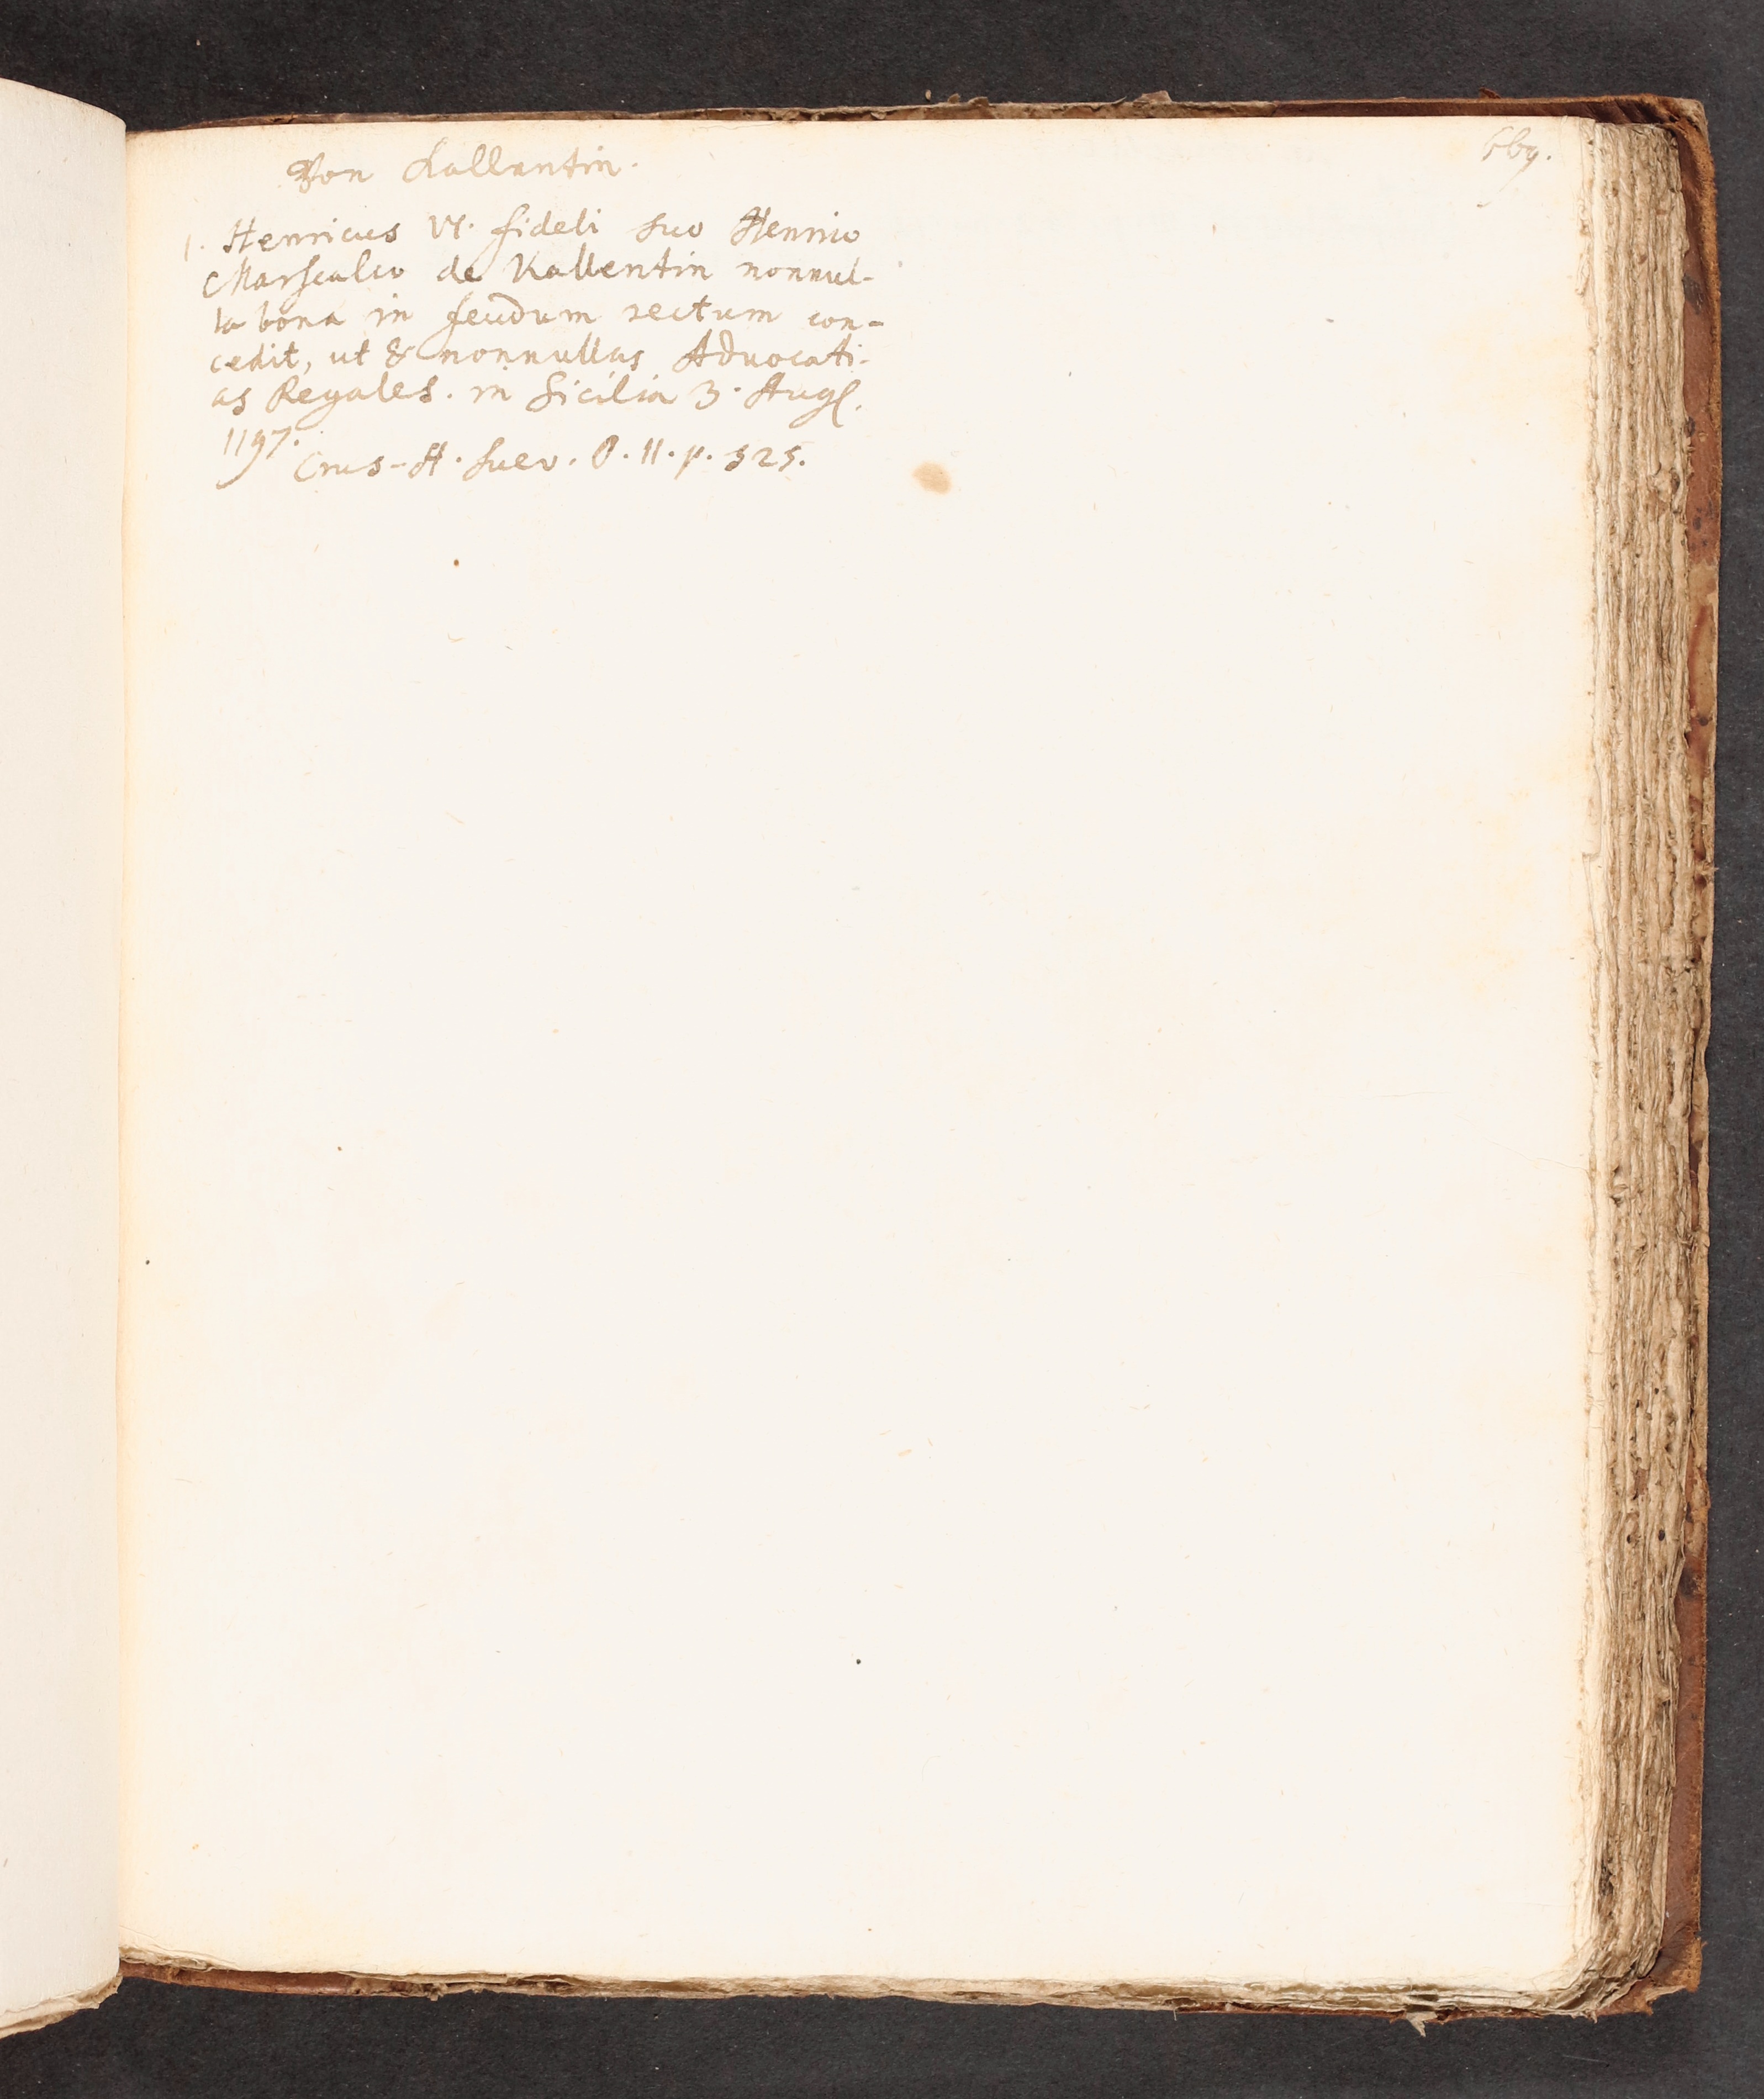 569.
Von Kallentin.
1. Henricus VI. fideli suo Henrico
Marscalco de Kallentin nonnul-
la bona in feudum rectum con-
cedit, ut & nonnullas Advocati-
as Regales. in Sicilia 3. Aug.
1197.
Crus. H. Suev. P. II. p. 525.